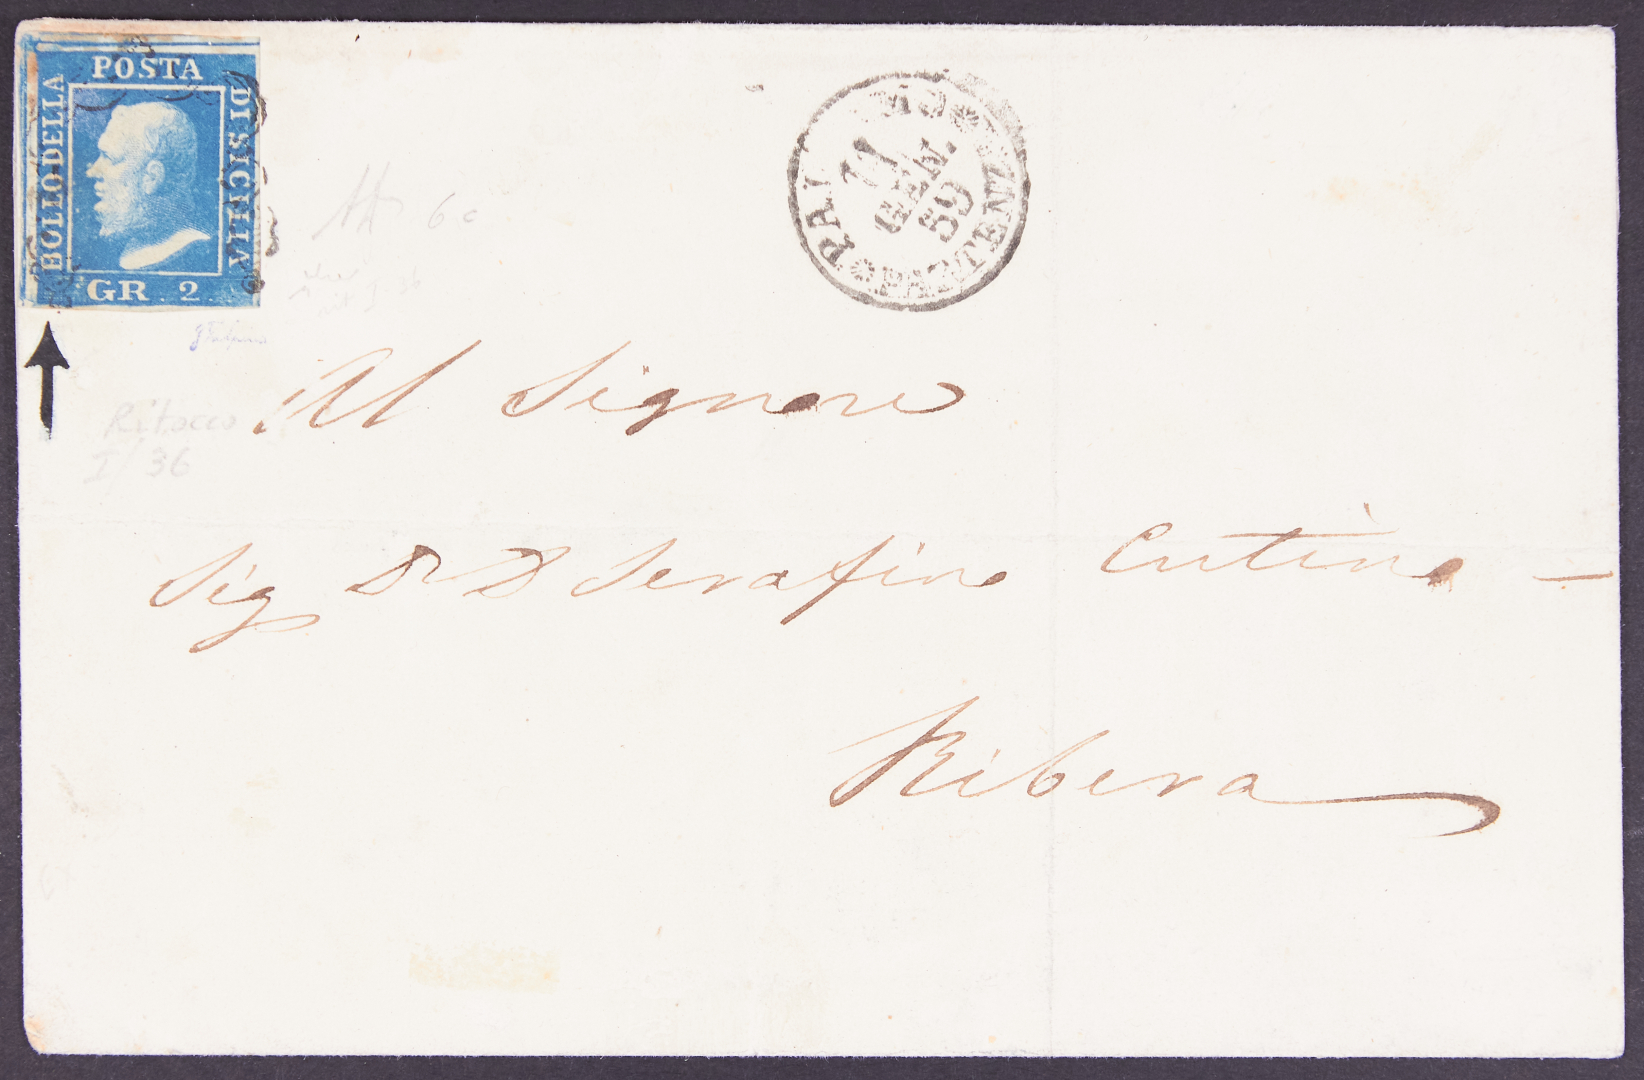 POSTA
BOLLO DELLA
DI SICILIA
GR. 2.
11
GEN.
59
PARTENZA
6c
Ritocco
I/36
Al Signore
Sig Dr D Serafino Cutino —
Ribera